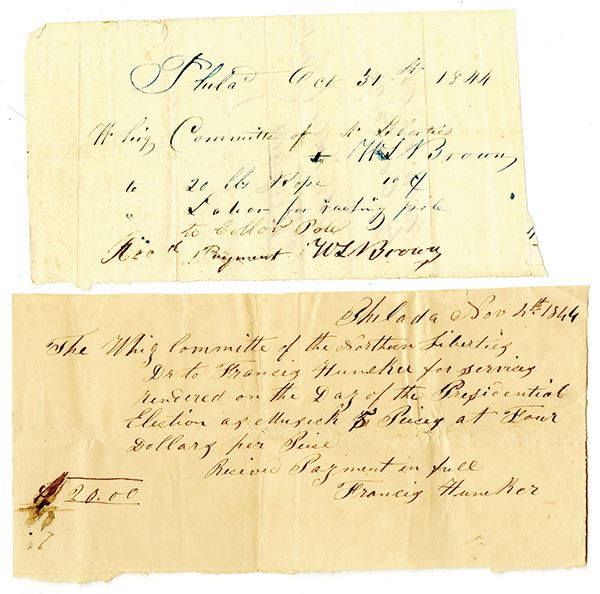 Philad Oct 31st 1844
Whig Committe of N Liberties
to W L N Brown
to 20 lbs Rope
" Labor for raising pole
to Pole
Rec'd Payment W L N Brown
Philada Nov 4th 1844
The Whig Committe of the Northern Liberties
Dr to Francis Huneker for servics
rendered on the Day of the Presidential
Election as Musick 5 Pieces at Four
Dollars per Peise
Recived Payment in full
$20.00
Francis Huneker